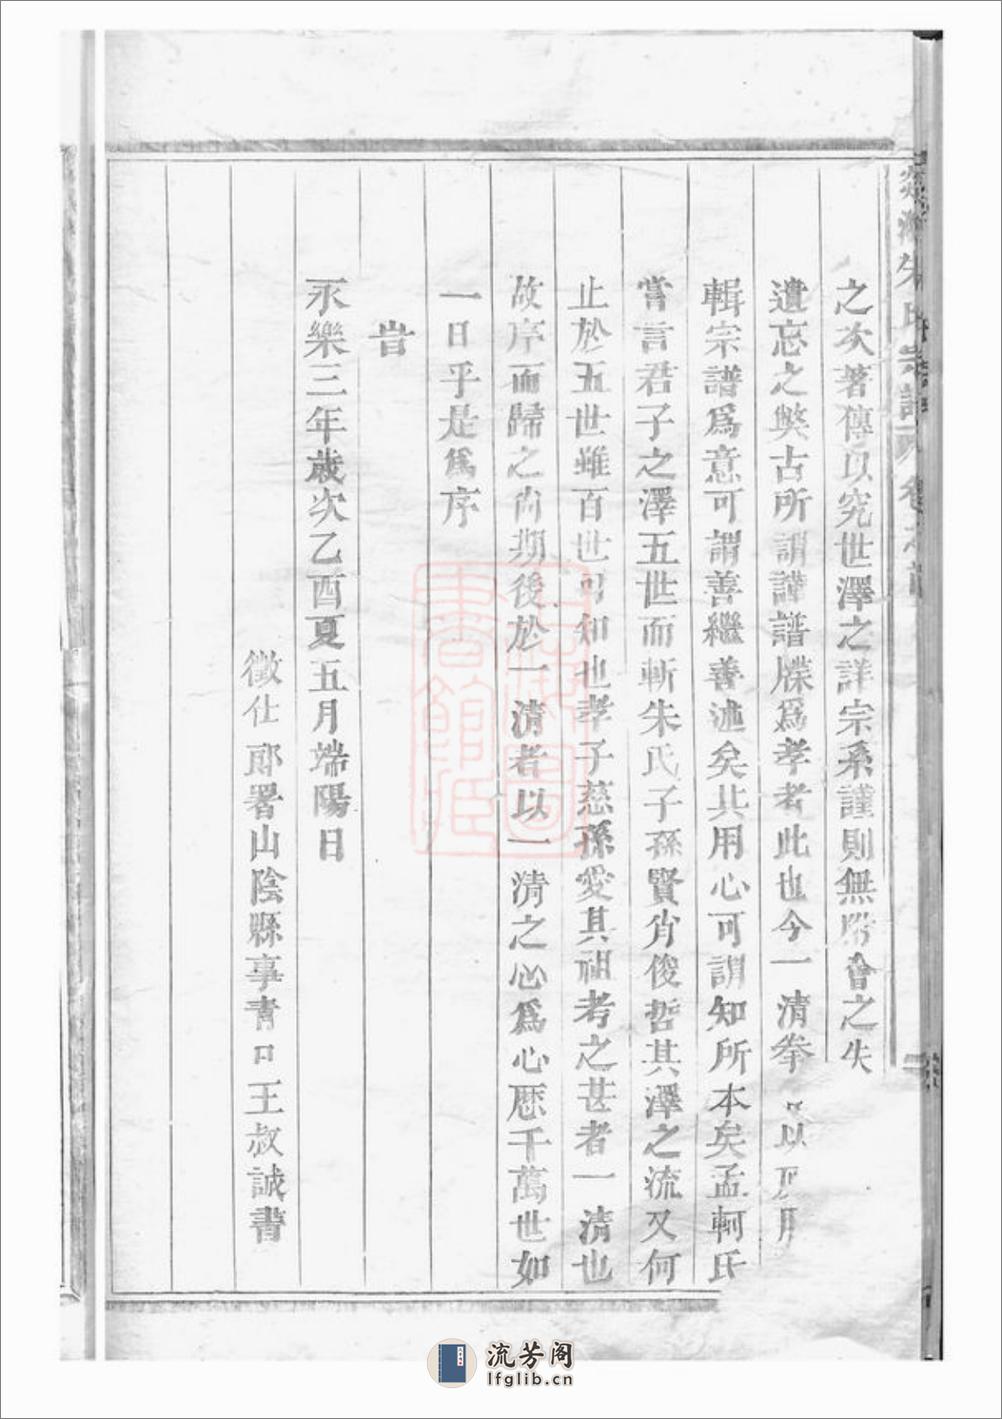 之次著傳以究世澤之詳宗系謹則無附會之失
遺忘之獘古所謂謹譜牒爲孝者此也今一清拳以
輯宗譜爲意可謂善繼善述矣其用心可謂知所本矣孟軻氏
嘗言君子之澤五世而斬朱氏子孫賢肖俊哲其澤之流又何
止於五世雖百世可知也孝子慈孫愛其祖考之甚者一清也
故序而歸之尚期後於一清者以一清之心爲心歷千萬世如
一日乎是爲序
旹
永樂三年歲次乙酉夏五月端陽日
徵仕郎署山陰縣事青口王叔誠書
朱氏宗譜 卷之首
上海圖書館藏
流芳阁
lfglib.cn